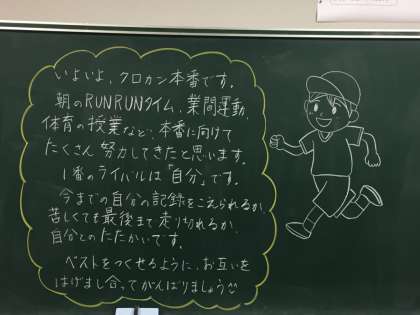 いよいよ、クロカン本番です。
朝のRUNRUNタイム、業間運動、
体育の授業など、本番に向けて
たくさん努力してきたと思います。
1番のライバルは「自分」です。
今までの自分の記録をこえられるか、
苦しくても最後まで走り切れるか、
自分とのたたかいです。
ベストをつくせるように、お互いを
はげまし合ってがんばりましょう